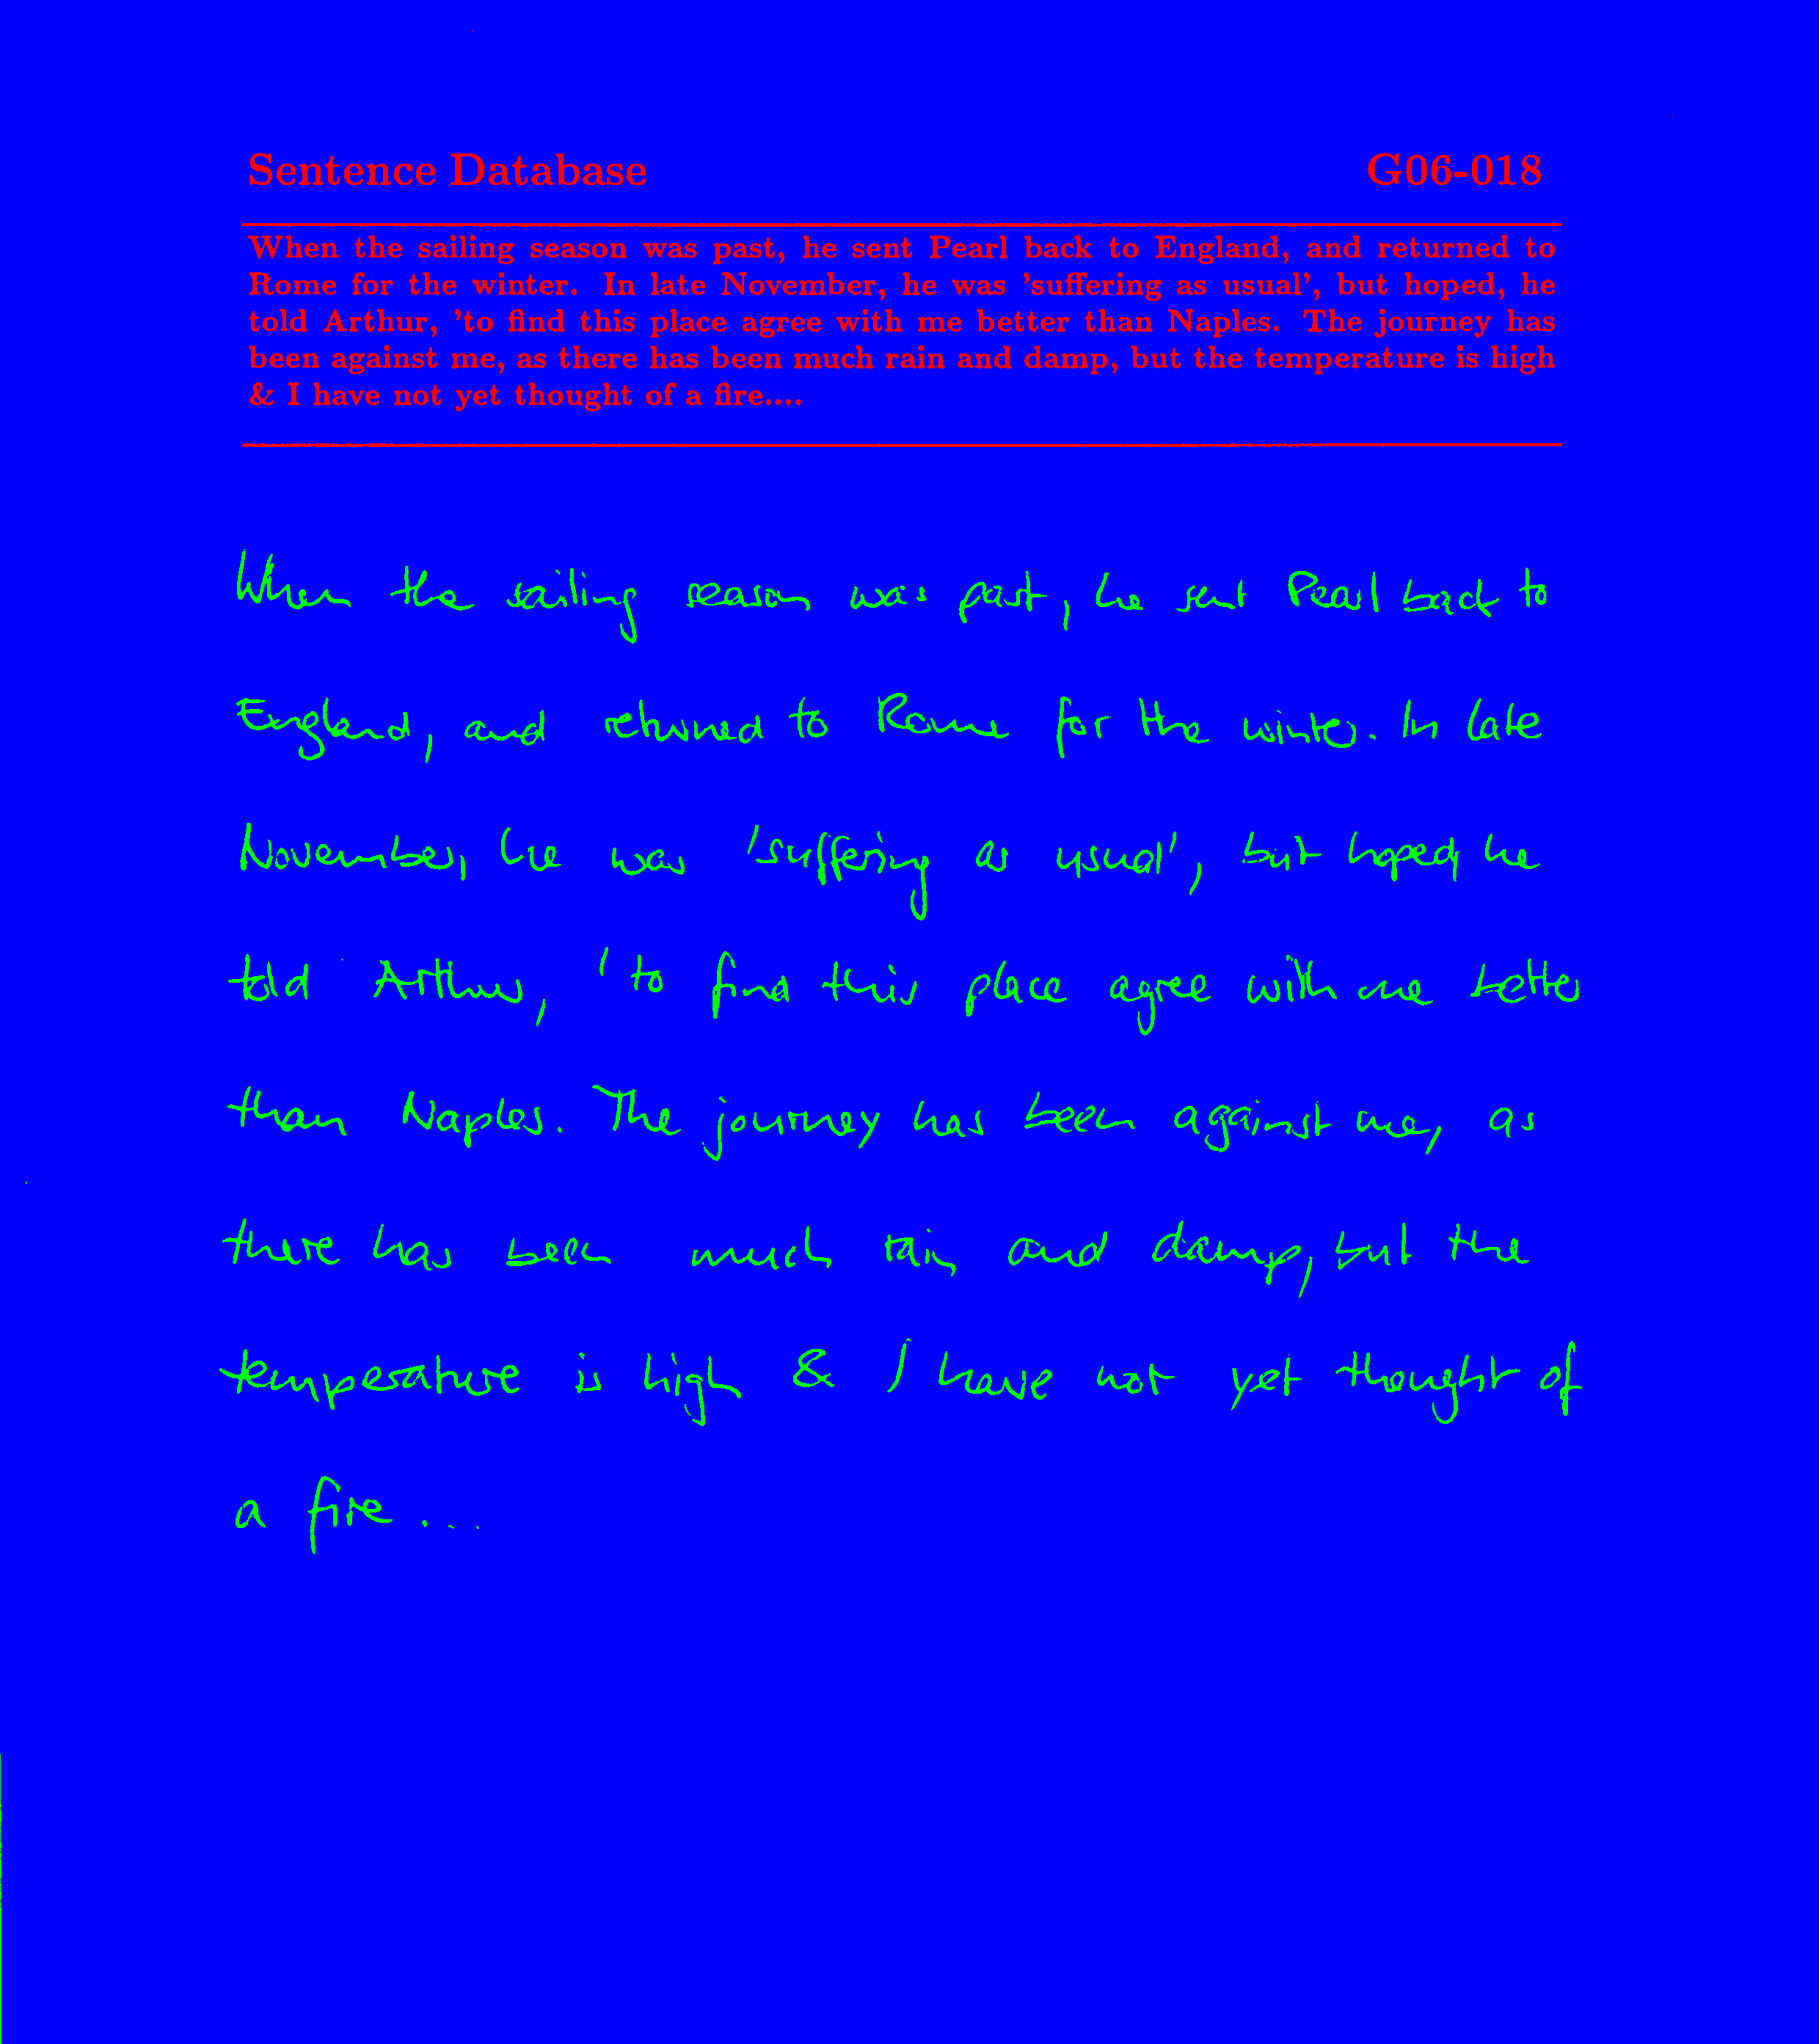 Sentence Database G06-018
When the sailing season was past, he sent Pearl back to England, and returned to
Rome for the winter. In late November, he was 'suffering as usual', but hoped, he
told Arthur, 'to find this place agree with me better than Naples. The journey has
been against me, as there has been much rain and damp, but the temperature is high
& I have not yet thought of a fire....
When the sailing season was past, he sent Pearl back to
England, and returned to Rome for the winter. In late
November, he was 'suffering as usual', but hoped, he
told Arthur, 'to find this place agree with me better
than Naples. The journey has been against me, as
there has been much rain and damp, but the
temperature is high & I have not yet thought of
a fire...